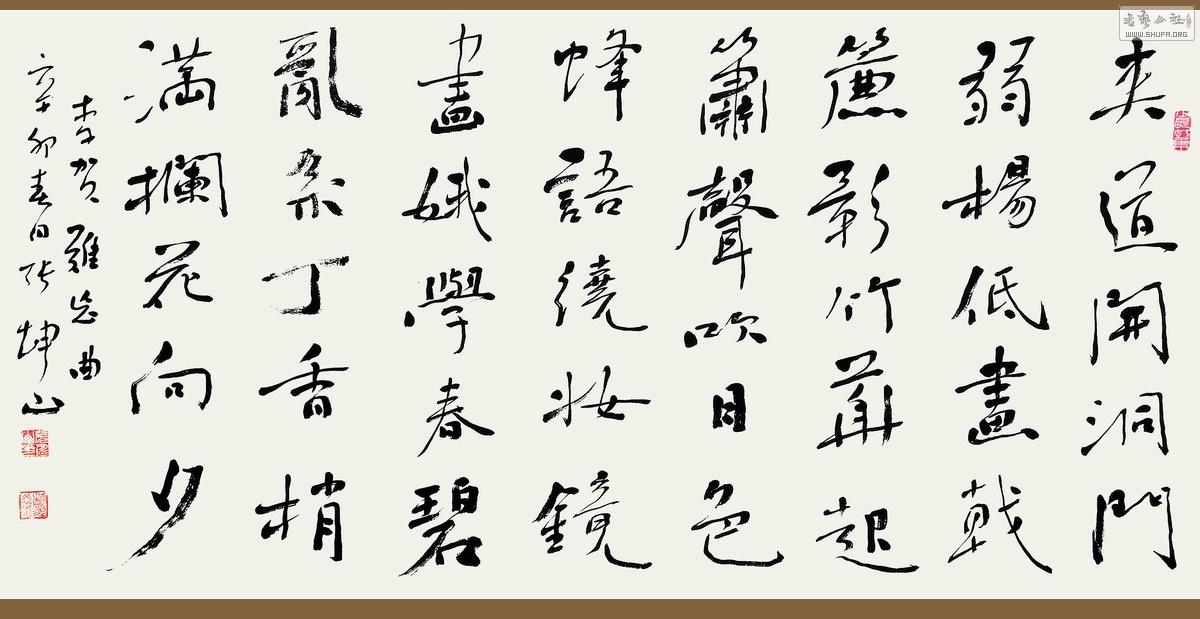 夾道開洞門
弱楊低畫戟
簾影竹華起
簫聲吹日色
蜂語繞妝鏡
畫娥學春碧
亂系丁香梢
滿欄花向夕
李賀難忘曲
辛卯春日張坤山
书艺公社
WWW.SHUFA.ORG